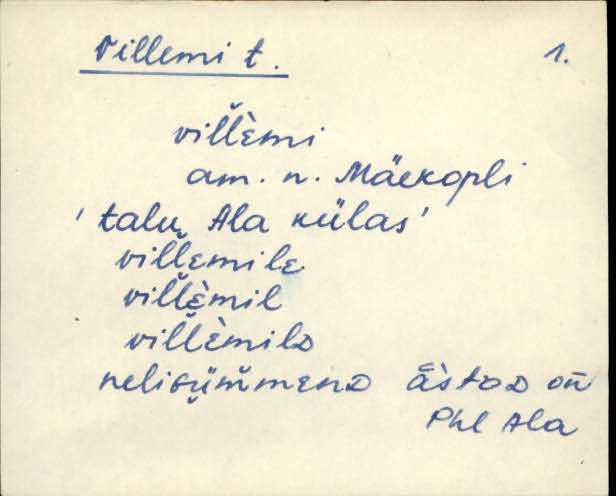 Villemi t. 1.
vil̆l̆èmi
am. n. Mäekopli
'talu̬ Ala külas'
vil̆l̆emile
vil̆l̆èmil
vil̆l̆èmilᴅ
neliɢüm̆menᴅ āstaᴅ on̄
Phl Ala